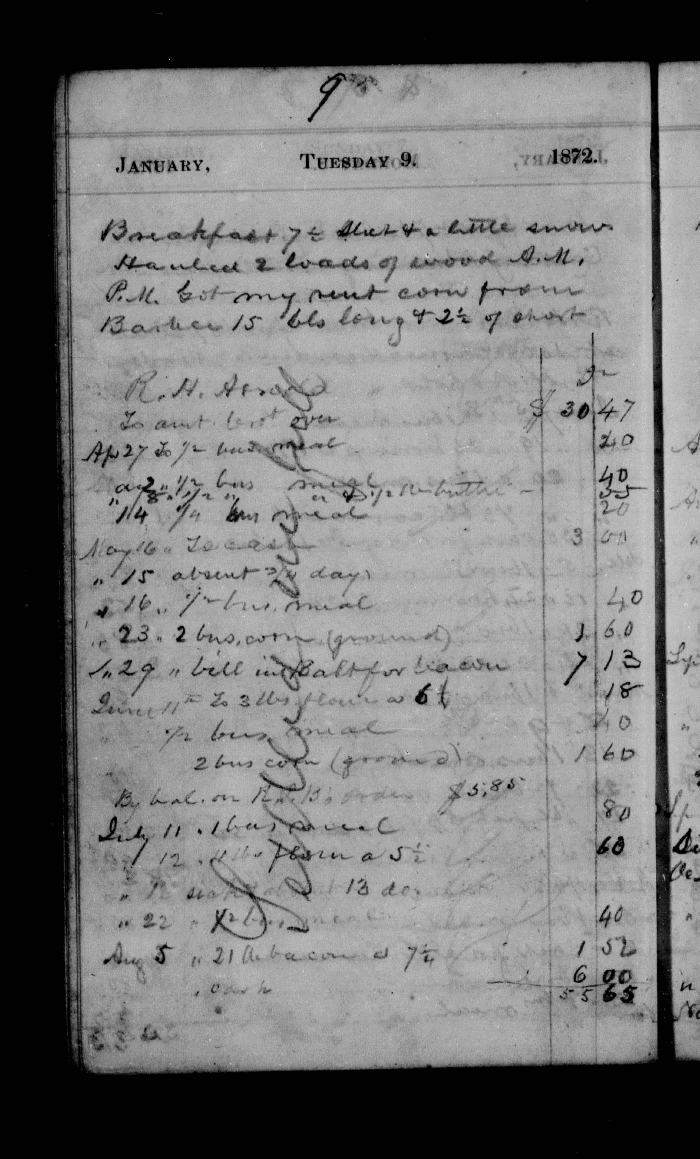 9
January, Tuesday 9. 1872.
Breakfast 7½ Sleet & a little snow
Hauled 2 loads of wood A.M.
P.M. Got my rent corn from
Barbee 15 bls long & 2½ of short
R. H.
Dr
To amt. bro't over $ 30 47
Ap 27 To ½ bus meal 40
" 2 " ½ bus meal 40
" 8 " ½ " " & ½ lb butter 55
" 14 " ¼ bus meal 20
May To cash 3 00
" 15 absent days
" 16 " ½ bus. meal 40
" 23 " 2 bus. corn (ground) 1 60
" 29 " bill in Balt for bacon 7 13
June 11th To 3 lbs flour a 6 18
½ bus. meal 40
2 bus corn (ground) 1 60
By bal. on order $5,85
July 11 " 1 bus meal 80
" 12 " lbs flour a 5½ 60
" 12 13 days
" 22 " ½ bus. meal 40
Aug 5 " 21 lb bacon a 7¼ 1 52
" cash 6 00
55 65